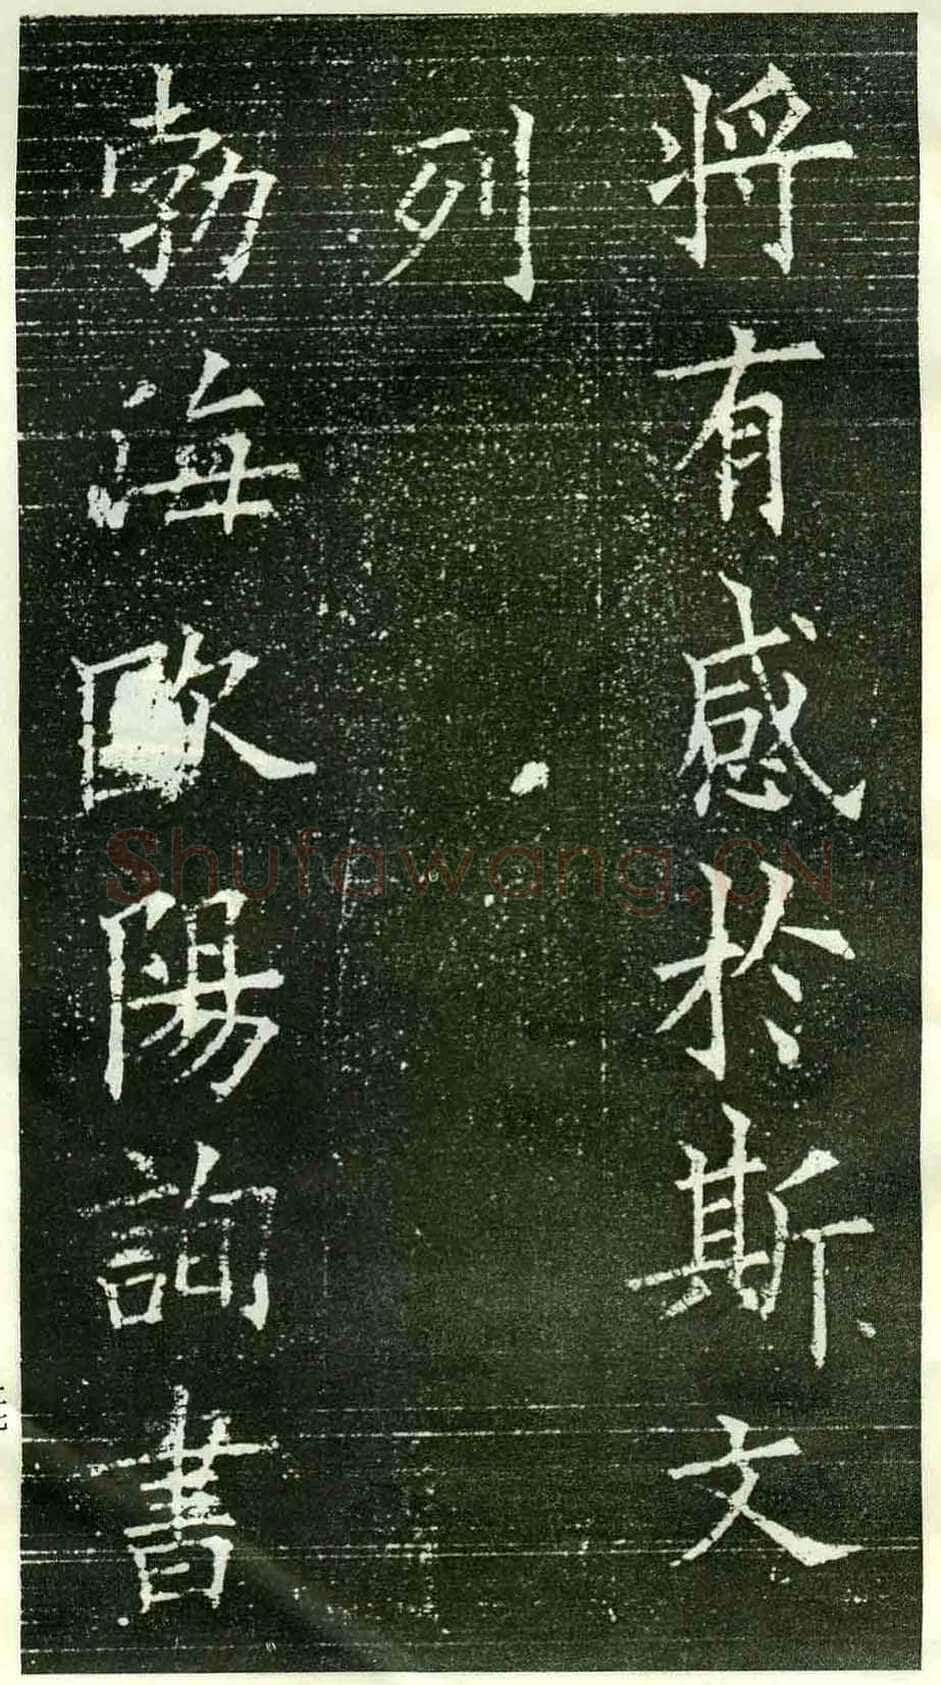 将有感於斯文
列
勃海歐陽詢書
Shufawang.CN